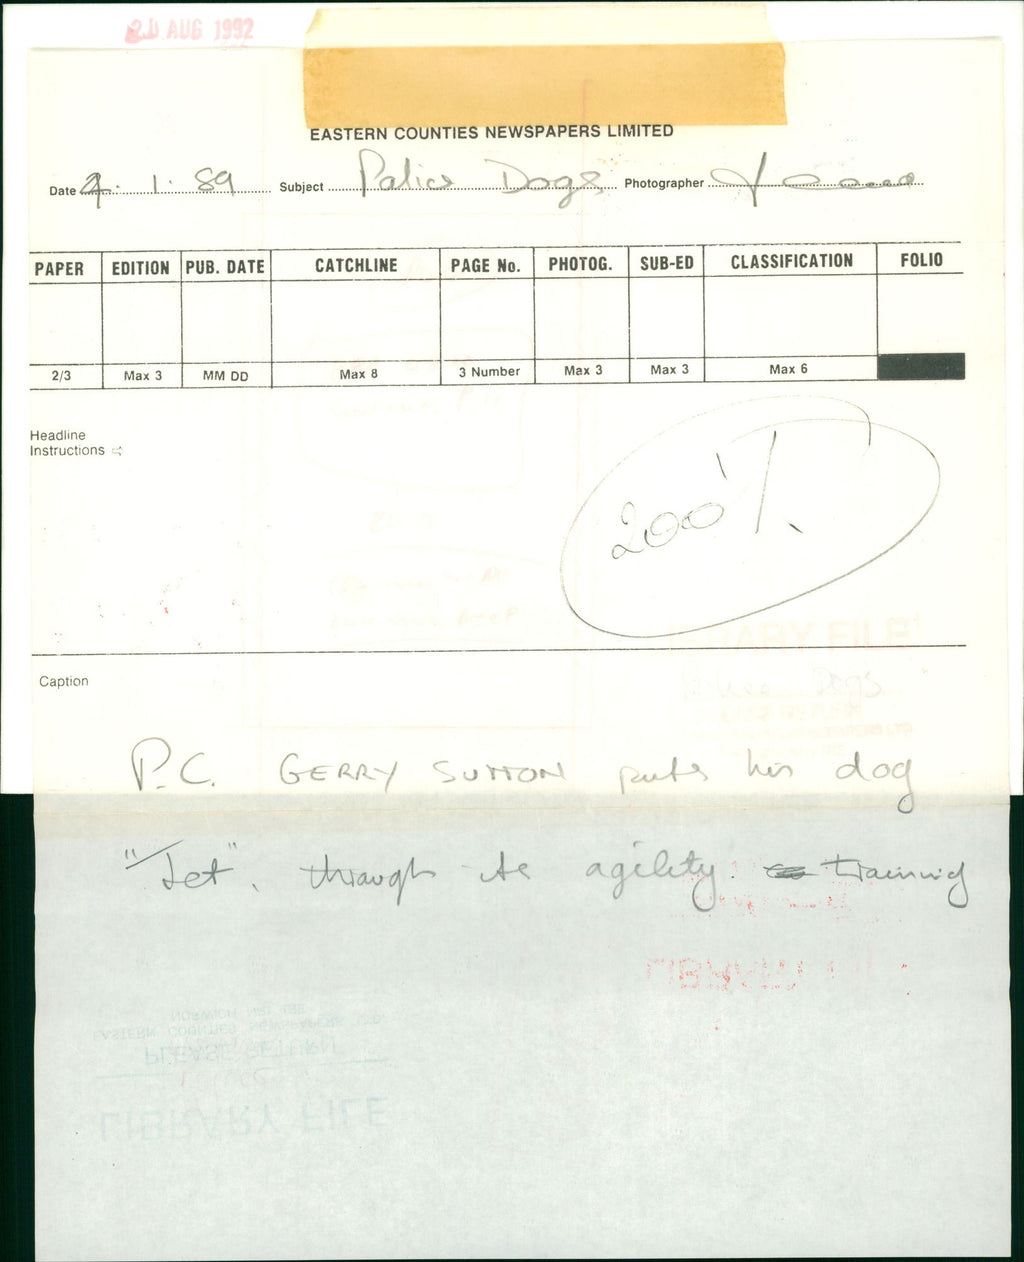 20 AUG 1992
EASTERN COUNTIES NEWSPAPERS LIMITED
Date 4.1.89 Subject Police Dogs Photographer
PAPER EDITION PUB. DATE CATCHLINE PAGE No. PHOTOG. SUB-ED CLASSIFICATION FOLIO
2/3 Max 3 MM DD Max 8 3 Number Max 3 Max 3 Max 6
Headline
Instructions
200%
LIBRARY FILE
Police Dogs
Caption
P.C. GERRY SUTTON puts his dog
"Jet", through its agility training
LIBRARY
NORWICH
EASTERN COUNTIES NEWSPAPERS LTD.
PLEASE RETURN
LIBRARY FILE